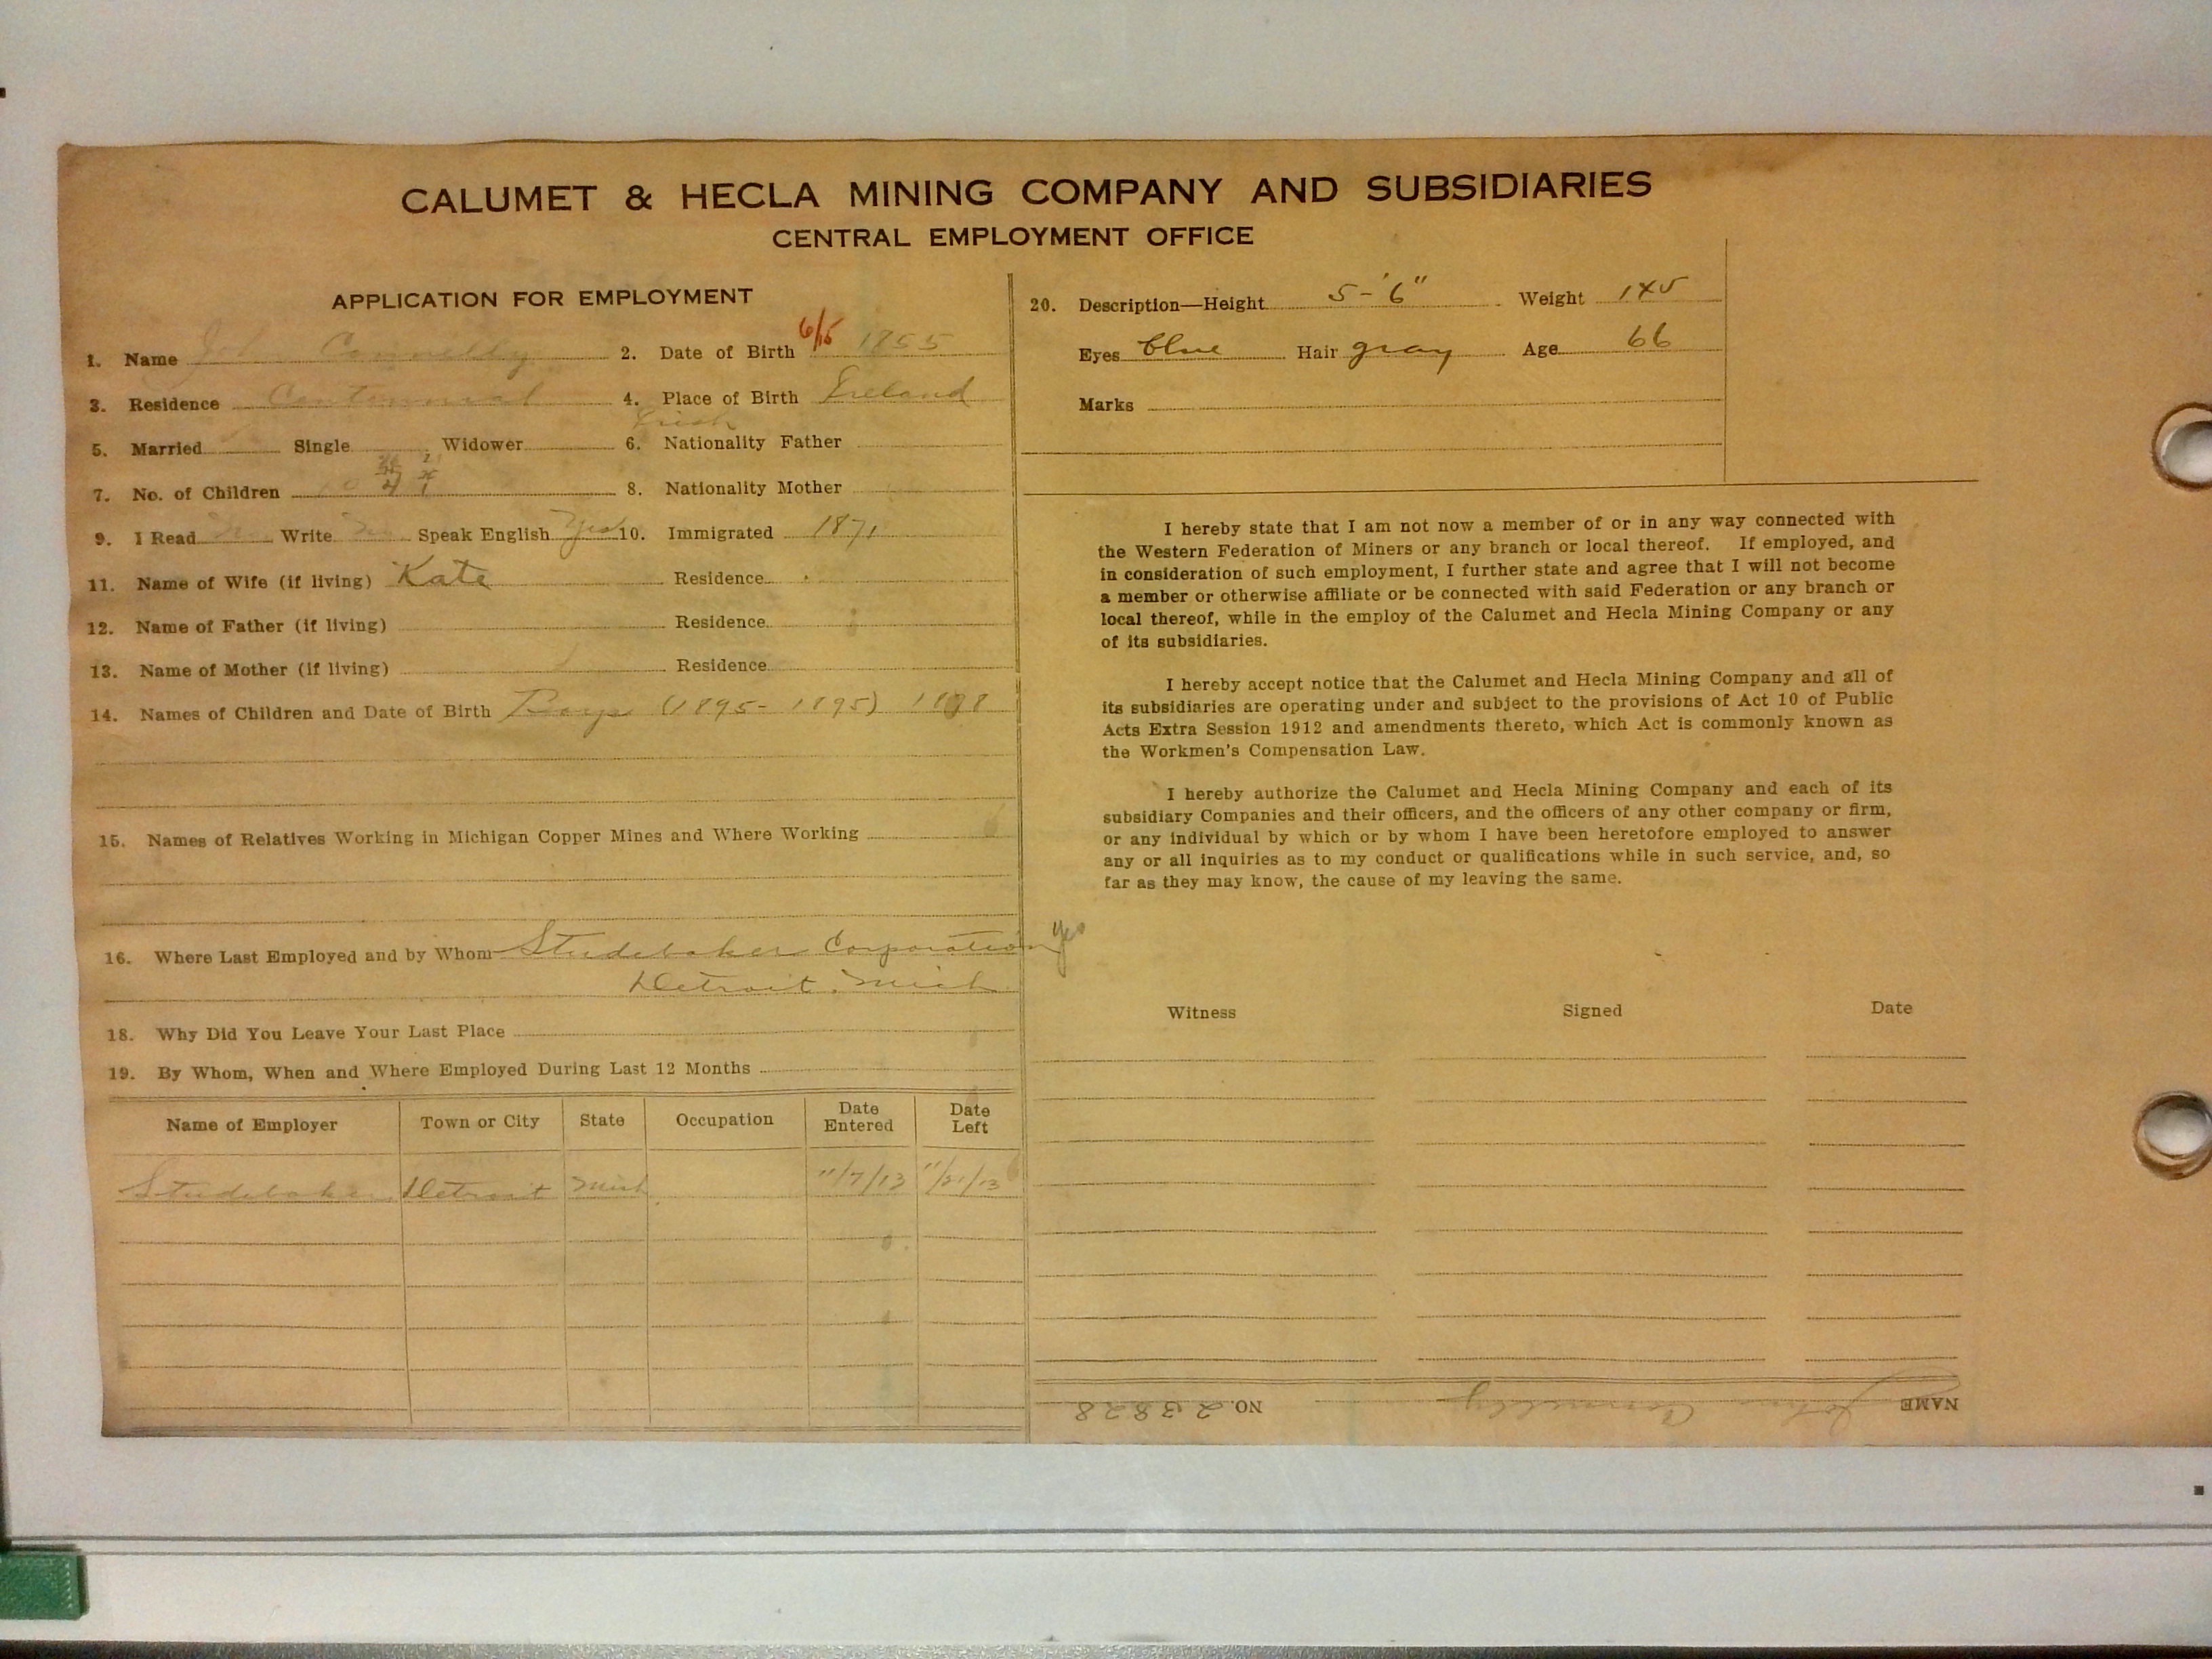 CALUMET & HECLA MINING COMPANY AND SUBSIDIARIES
CENTRAL EMPLOYMENT OFFICE
APPLICATION FOR EMPLOYMENT
1. Name John Connelly 2. Date of Birth 6/15 1855
3. Residence Centennial 4. Place of Birth Ireland
Irish
5. Married Single Widower 6. Nationality Father
7. No. of Children 8. Nationality Mother
9. I Read No Write No Speak English Yes 10. Immigrated 1871
11. Name of Wife (if living) Kate Residence
12. Name of Father (if living) Residence
13. Name of Mother (if living) Residence
14. Names of Children and Date of Birth Boys (1895- 1895) 1898
15. Names of Relatives Working in Michigan Copper Mines and Where Working
16. Where Last Employed and by Whom Studebaker Corporation
Detroit. Mich
18. Why Did You Leave Your Last Place
19. By Whom, When and Where Employed During Last 12 Months
Name of Employer Town or City State Occupation Date Entered Date Left
Studebaker Detroit Mich 11/7/13 11/21/13
20. Description—Height 5-'6" Weight 145
Eyes blue Hair gray Age 66
Marks
I hereby state that I am not now a member of or in any way connected with
the Western Federation of Miners or any branch or local thereof. If employed, and
in consideration of such employment, I further state and agree that I will not become
a member or otherwise affiliate or be connected with said Federation or any branch or
local thereof, while in the employ of the Calumet and Hecla Mining Company or any
of its subsidiaries.
I hereby accept notice that the Calumet and Hecla Mining Company and all of
its subsidiaries are operating under and subject to the provisions of Act 10 of Public
Acts Extra Session 1912 and amendments thereto, which Act is commonly known as
the Workmen's Compensation Law.
I hereby authorize the Calumet and Hecla Mining Company and each of its
subsidiary Companies and their officers, and the officers of any other company or firm,
or any individual by which or by whom I have been heretofore employed to answer
any or all inquiries as to my conduct or qualifications while in such service, and, so
far as they may know, the cause of my leaving the same.
Yes
Witness Signed Date
NAME John Connelly NO. 23828